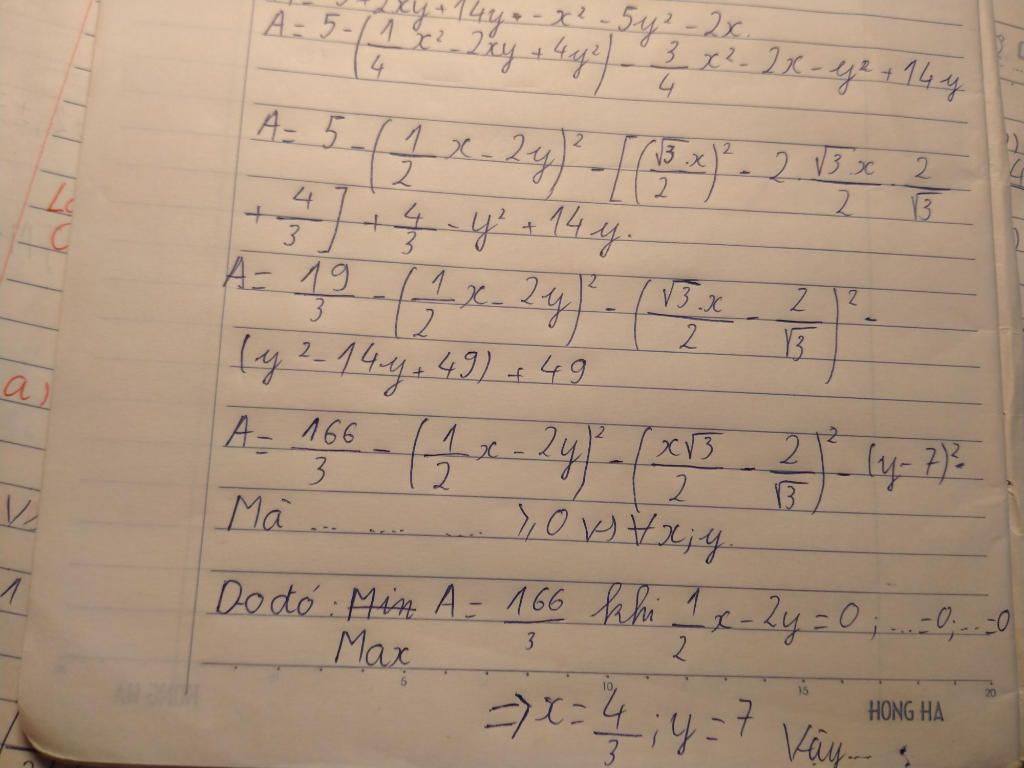 +2xy+14y - x² - 5y² - 2x.
A = 5 - (1/4 x² - 2xy + 4y²) - 3/4 x² - 2x - y² + 14y
A = 5 - (1/2 x - 2y)² - [(√3.x/2)² - 2 √3x/2 . 2/√3
+ 4/3] + 4/3 - y² + 14y.
A = 19/3 - (1/2 x - 2y)² - (√3.x/2 - 2/√3)² -
(y² - 14y + 49) + 49
A = 166/3 - (1/2 x - 2y)² - (x√3/2 - 2/√3)² - (y - 7)².
Mà ... .... .... ⩾ 0 với ∀x; y.
Do đó: Min A = 166/3 khi 1/2 x - 2y = 0; ... = 0; ... = 0
Max
5 10 15 20
HONG HA
⇒ x = 4/3; y = 7 Vậy...
a)
1